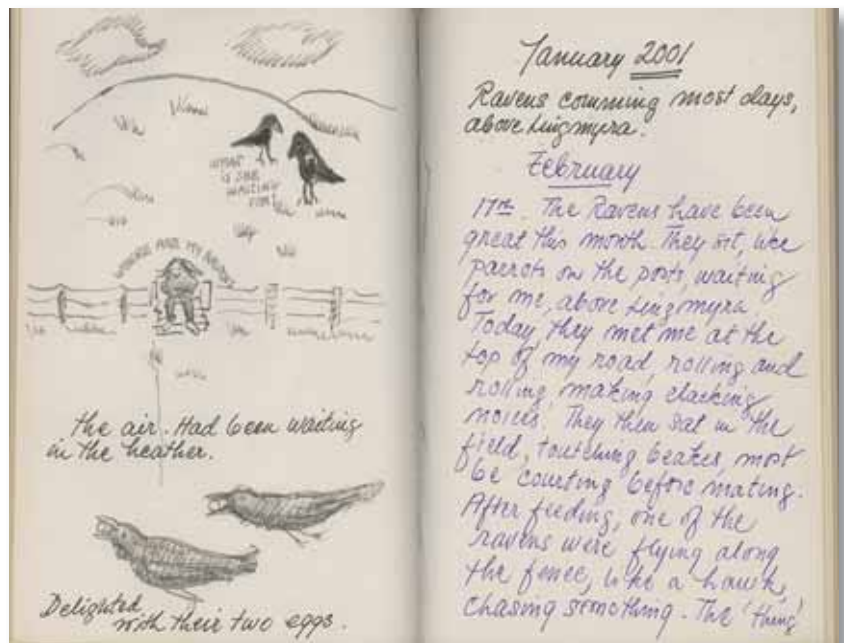 WHAT
IS SHE
WAITING
FOR?
WHERE ARE MY RAVENS
the air. Had been waiting
in the heather.
Delighted
with their two eggs.
January 2001
Ravens comming most days,
above Lingmyra.
February
17th. The Ravens have been
great this month. They sit, like
parrots on the posts, waiting
for me, above Lingmyra.
Today they met me at the
top of my road, rolling and
rolling, making clacking
noises. They then sat in the
field, toutching beakes, most
be courting before mating.
After feeding, one of the
ravens were flying along
the fence, like a hawk,
chasing something. The 'thing'